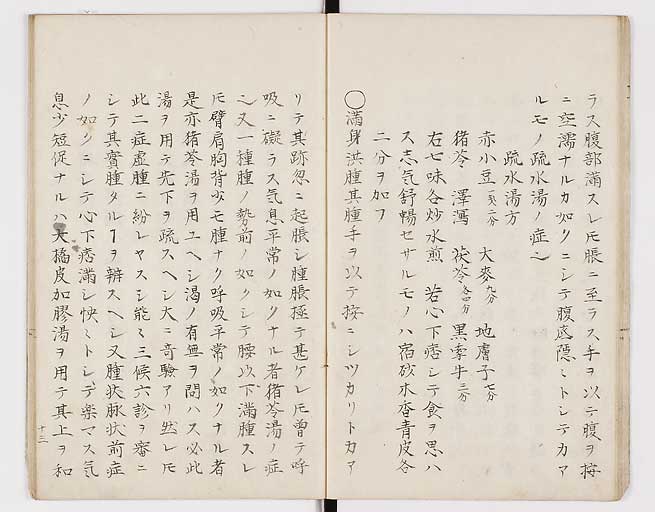 ラス腹部滿スレ𪜈脹ニ至ラス手ヲ以テ腹ヲ按
ニ空濡ナルカ如クニシテ腹底隱ミトシテカア
ルモノ疏水湯ノ症也
疏水湯方
赤小豆 二分 大麥 九分 地膚子 七分
猪苓 澤瀉 茯苓 各四分 黒牽牛 三分
右七味各炒水煎 若心下痞シテ食ヲ思ハ
ス志気舒暢セサルモノハ宿砂木香青皮各
二分ヲ加フ
〇滿身洪腫其腫手ヲ以テ按ニシツカリトカア
リテ其跡忽ニ起脹シ腫脹極テ甚ケレ𪜈曽テ呼
吸ニ礙ラス気息平常ノ如クナル者猪苓湯ノ症
也又一種腫ノ勢前ノ如クシテ腰以下滿腫スレ
𪜈臂肩胸背少モ腫ナク呼吸平常ノ如クナル者
是亦猪苓湯ヲ用ユヘシ渇ノ有無ヲ問ハス必此
湯ヲ用テ先下ヲ疏スヘシ大ニ奇驗アリ然レ𪜈
此二症虚腫ニ紛レヤスシ能ミ三候六診ヲ審ニ
シテ其實腫タルヿヲ辨スヘシ又腫状脉状前症
ノ如クニシテ心下痞滿シ怏ミトシテ楽マス気
息少短促ナルハ大橘皮加膠湯ヲ用テ其上ヲ和
十三